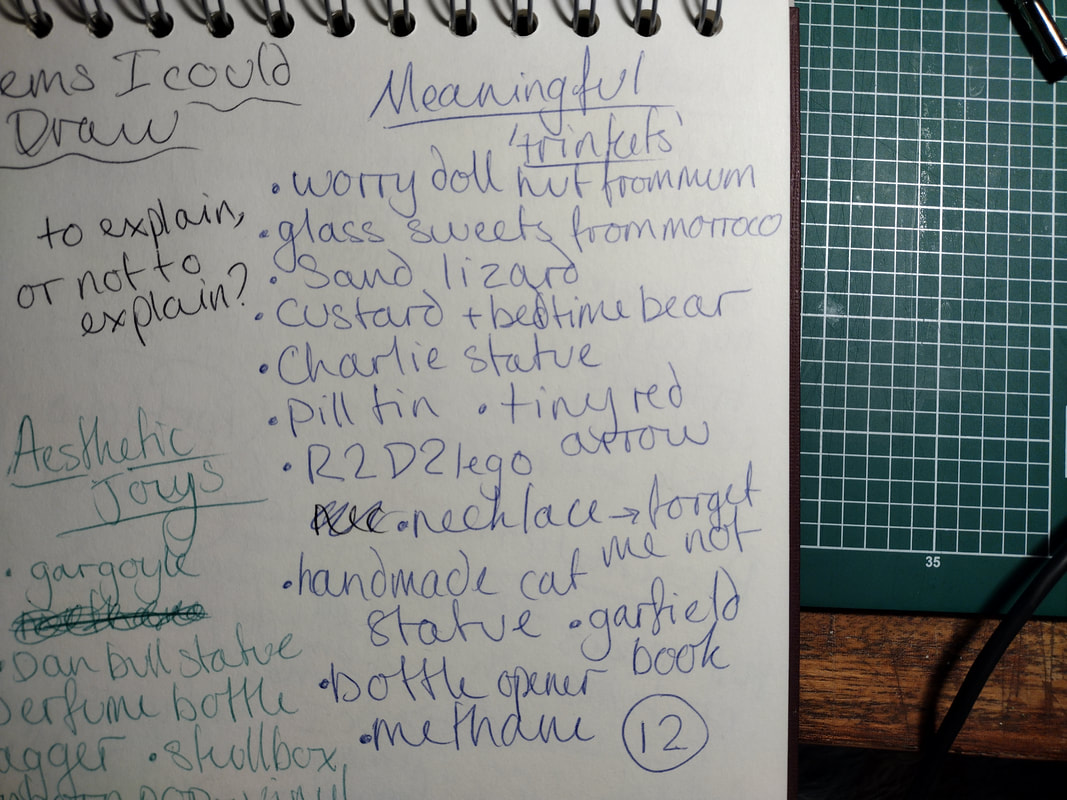 ems I could
Draw
to explain,
or not to
explain?
Aesthetic
Joys
• gargoyle
• Dan bull statue
perfume bottle
agger • skullbox
Meaningful
'trinkets'
• worry doll nut from mum
• glass sweets from morroco
• Sand lizard
• custard + bedtime bear
• Charlie statue
• pill tin • tiny red
arrow
• R2D2 lego
• necklace → forget
me not
• handmade cat
statue • garfield
book
• bottle opener
• methane 12
35